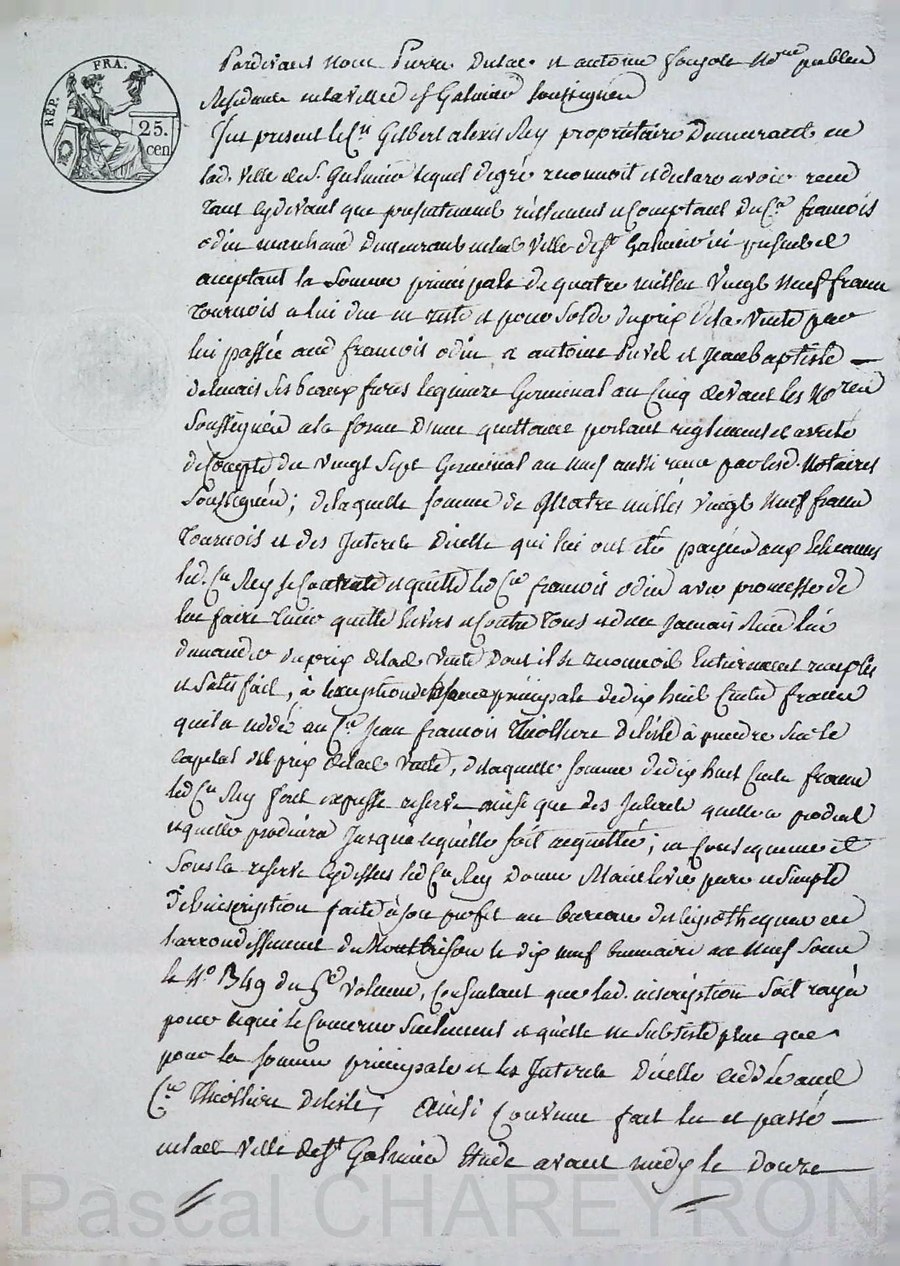 RÉP. FRA.
25.
cen
Pardevant nous Pierre Dulac et antoine fougole No.res publics
Residants en la ville de St Galmier soussignés
fut present le Cen Gilbert alexis Rey propriétaire Demeurant en
lad. ville de St Galmier lequel de gré reconnoit et declare avoir recu
tant cy devant que presentement réellement et Comptant du Cen francois
odin marchand Demeurant en lad ville de St Galmier ici present et
acceptant la Somme principale de quatre milles vingt neuf francs
tournois a lui due en reste et pour Solde du prix de la vente par
lui passée aud francois odin a antoine et jean baptiste —
Delmais ses beaux freres le Germinal an Cinq devant les No.res
Soussignés a la forme D'une quittance portant reglement et arrete
de Compte du vingt Sept Germinal an neuf aussi recue par lesd. Notaires
Soussignés ; de laquelle Somme de Quatre milles vingt neuf francs
tournois et des Interets D'icelle qui lui ont été payés aux Echeances
led. Cen Rey se Contente et quitte led Cen francois odin avec promesse de
l'en faire tenir quitte Envers et Contre tous et de ne Jamais Rien lui
demander du prix de lad vente Dont il se reconnoit Entierement remplis
et Satisfait, à l'exception de la Somme principale de dix huit Cents francs
qu'il a cédée au Cen Jean francois Thiolliere Delisle à prendre sur le
capital du prix de lad vente, de laquelle Somme de dix huit Cents francs
led Cen Rey fait expresse reserve ainsi que des Interets quelle a produit
et quelle produira Jusqua ce quelle soit acquittée ; en Consequence et
Sous la reserve cy dessus led Cen Rey Donne Main levée pure et Simple
de l'inscription faite à son profit au bureau des hipothèques de
l'arrondissement de Montbrison le dix neuf brumaire an neuf sous
le No. 1349 du 5e volume, Consentant que lad. inscription soit rayée
pour ce qui le Concerne Seulement et quelle ne Subsiste plus que
pour la Somme principale et les Interets D'icelle cédée aud
Cen Thiolliere Delisle ; Ainsi Convenu fait lu et passé —
en lad ville de St Galmier Etude avant midy le Douze —
Pascal CHAREYRON